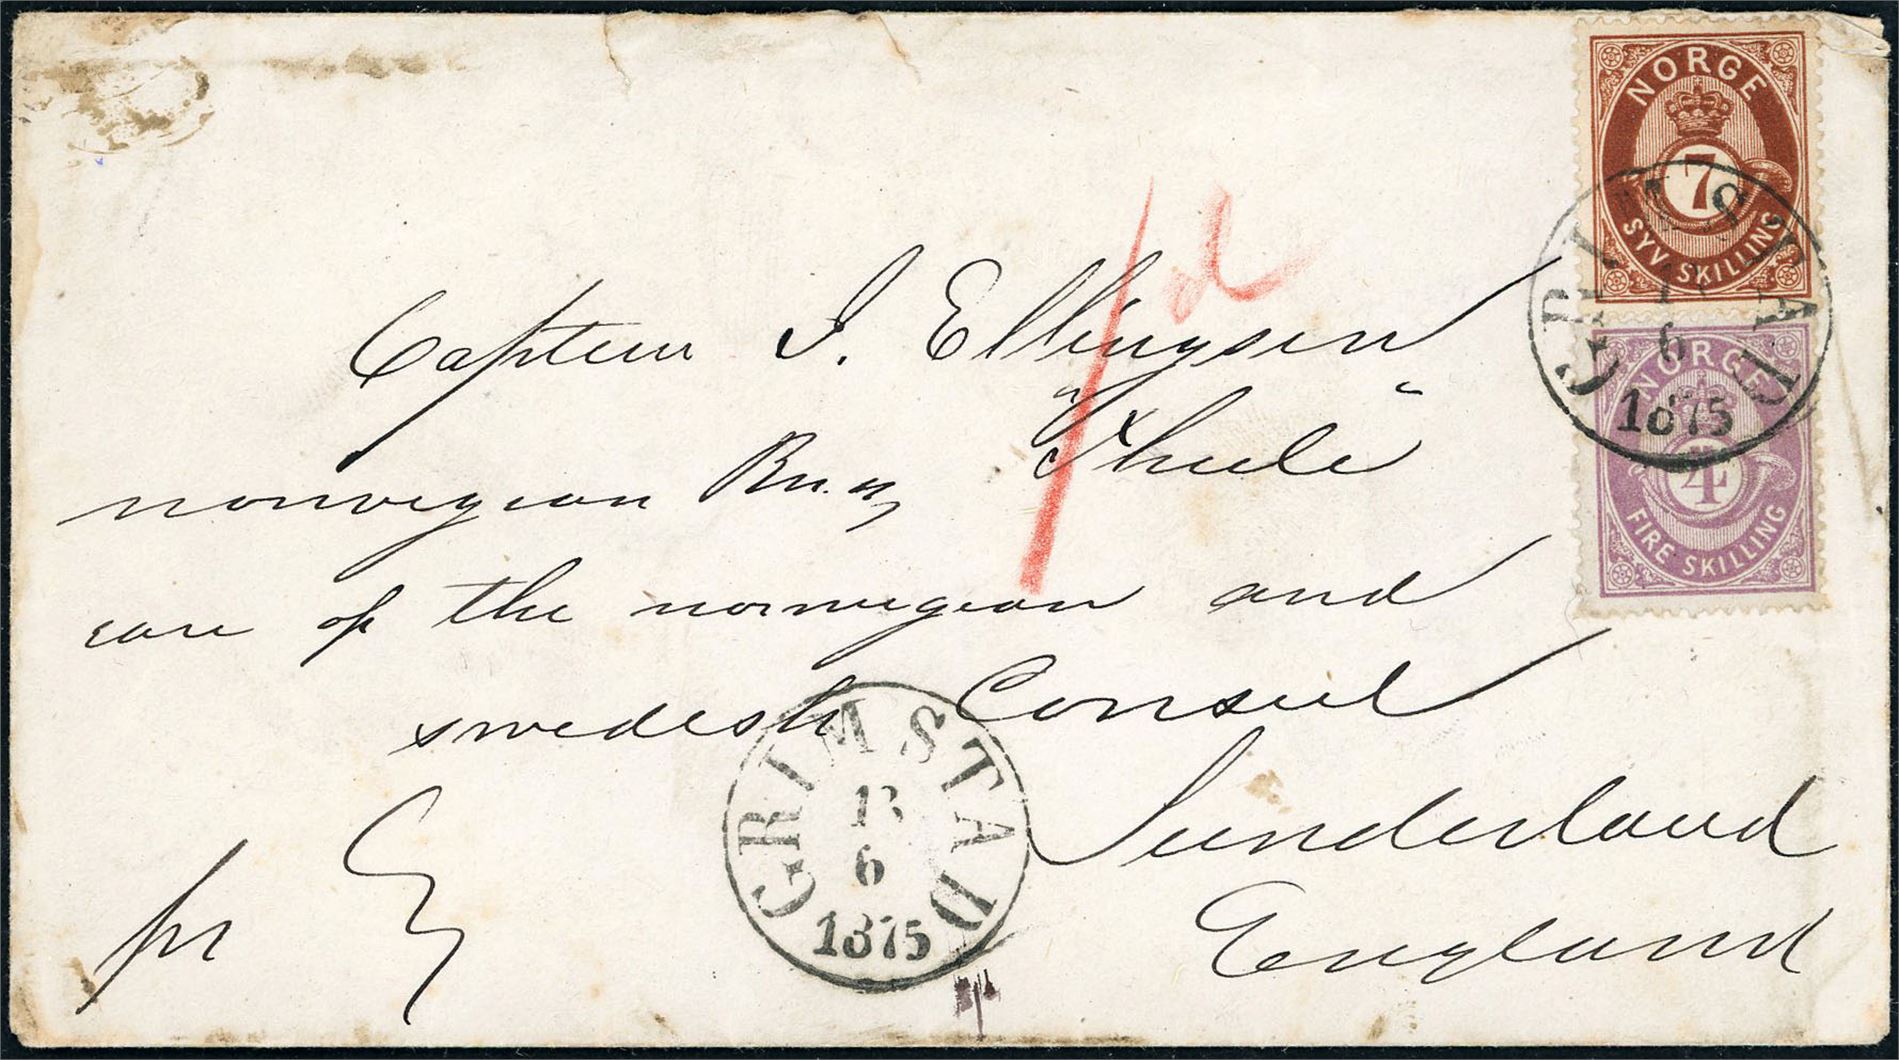 NORGE
7
SYV SKILLING
GRIMSTAD
6
1875
NORGE
4
FIRE SKILLING
1 d
Captein I. Ellingsen
norwegian Brig "Thule"
care of the norwegian and
swedish Consul
Sunderland
England
pr
GRIMSTAD
13
6
1875